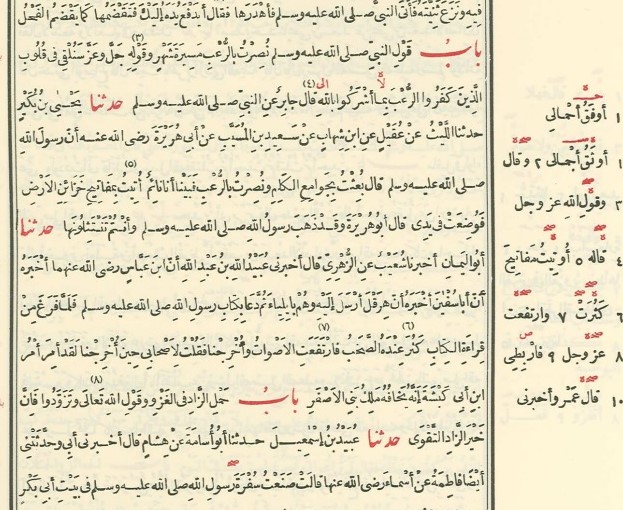 فيه ونزع ثنيته فأتى النبي صلى الله عليه وسلم فأهدرها فقال أيدفع يده إليك فتقضمها كما يقضم الفحل
باب قول النبي صلى الله عليه وسلم نصرت بالرعب مسيرة شهر وقوله (٣) جل وعز سنلقي في قلوب
الذين كفروا الرعب بما أشركوا بالله قال (٤) جابر عن النبي صلى الله عليه وسلم حدثنا يحيى بن بكير
حدثنا الليث عن عقيل عن ابن شهاب عن سعيد بن المسيب عن أبي هريرة رضي الله عنه أن رسول الله
صلى الله عليه وسلم قال بعثت بجوامع الكلم ونصرت بالرعب فبينا أنا نائم أتيت (٥) بمفاتيح خزائن الأرض
فوضعت في يدي قال أبو هريرة وقد ذهب رسول الله صلى الله عليه وسلم وأنتم تنتثلونها حدثنا
أبو اليمان أخبرنا شعيب عن الزهري قال أخبرني عبيد الله بن عبد الله أن ابن عباس رضي الله عنهما أخبره
أن أبا سفين أخبره أن هرقل أرسل إليه وهم بإيلياء ثم دعا بكتاب رسول الله صلى الله عليه وسلم فلما فرغ من
قراءة الكتاب كثر (٦) عنده الصخب فارتفعت (٧) الأصوات وأخرجنا فقلت لأصحابي حين أخرجنا لقد أمر أمر
ابن أبي كبشة إنه يخافه ملك بني الأصفر باب حمل الزاد في الغزو وقول (٨) الله تعالى وتزودوا فإن
خير الزاد التقوى حدثنا عبيد بن إسمعيل حدثنا أبو أسامة عن هشام قال أخبرني أبي وحدثتني
أيضا فاطمة عن أسماء رضي الله عنها قالت صنعت سفرة رسول الله صلى الله عليه وسلم في بيت أبي بكر
١ أوفق أحمالي
١ أوثق أجمالي ٢ وقال
٣ وقول الله عز وجل
٤ قاله ٥ أوتيت مفاتيح
٦ كثرت ٧ وارتفعت
٨ عز وجل ٩ فاربطي
١٠ قال عمرو أخبرني